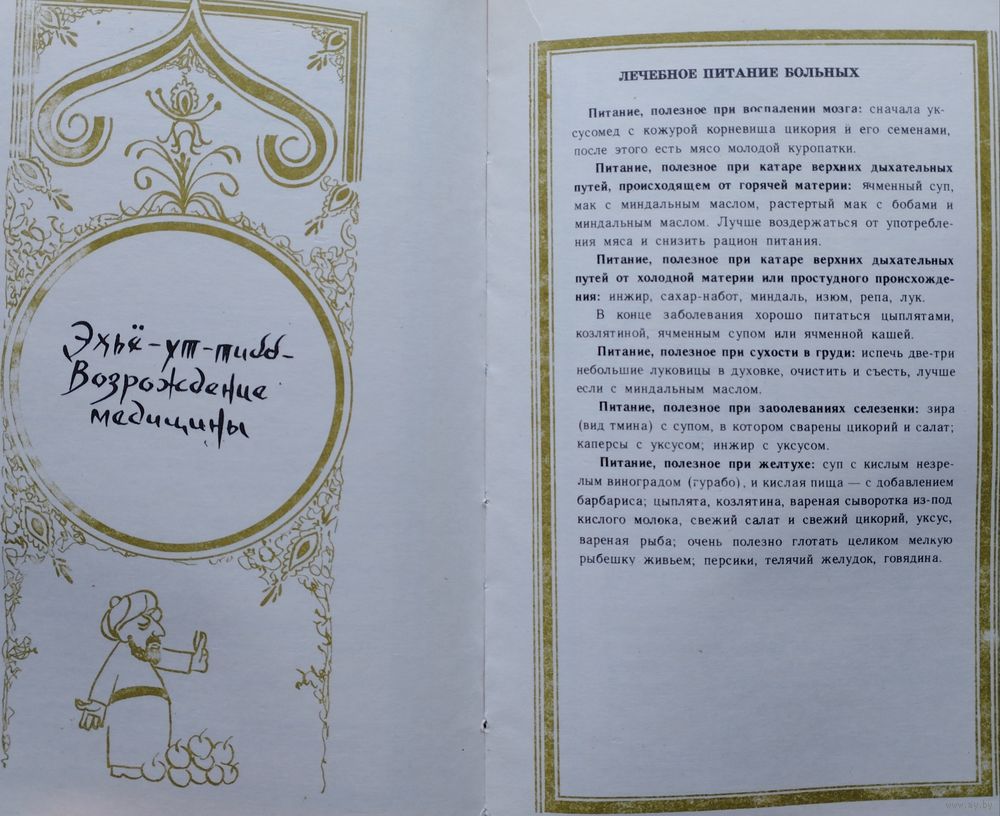 Эҳьё-ут-тибб-
Возрождение
медицины
ЛЕЧЕБНОЕ ПИТАНИЕ БОЛЬНЫХ
Питание, полезное при воспалении мозга: сначала ук-
сусомед с кожурой корневища цикория и его семенами,
после этого есть мясо молодой куропатки.
Питание, полезное при катаре верхних дыхательных
путей, происходящем от горячей материи: ячменный суп,
мак с миндальным маслом, растертый мак с бобами и
миндальным маслом. Лучше воздержаться от употребле-
ния мяса и снизить рацион питания.
Питание, полезное при катаре верхних дыхательных
путей от холодной материи или простудного происхожде-
ния: инжир, сахар-набот, миндаль, изюм, репа, лук.
В конце заболевания хорошо питаться цыплятами,
козлятиной, ячменным супом или ячменной кашей.
Питание, полезное при сухости в груди: испечь две-три
небольшие луковицы в духовке, очистить и съесть, лучше
если с миндальным маслом.
Питание, полезное при заболеваниях селезенки: зира
(вид тмина) с супом, в котором сварены цикорий и салат;
каперсы с уксусом; инжир с уксусом.
Питание, полезное при желтухе: суп с кислым незре-
лым виноградом (гурабо), и кислая пища — с добавлением
барбариса; цыплята, козлятина, вареная сыворотка из-под
кислого молока, свежий салат и свежий цикорий, уксус,
вареная рыба; очень полезно глотать целиком мелкую
рыбешку живьем; персики, телячий желудок, говядина.
www.ay.by